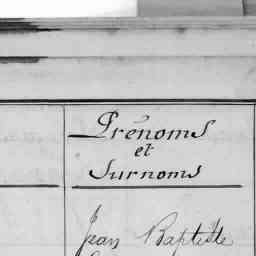 Prénoms
et
Surnoms
Jean Baptiste